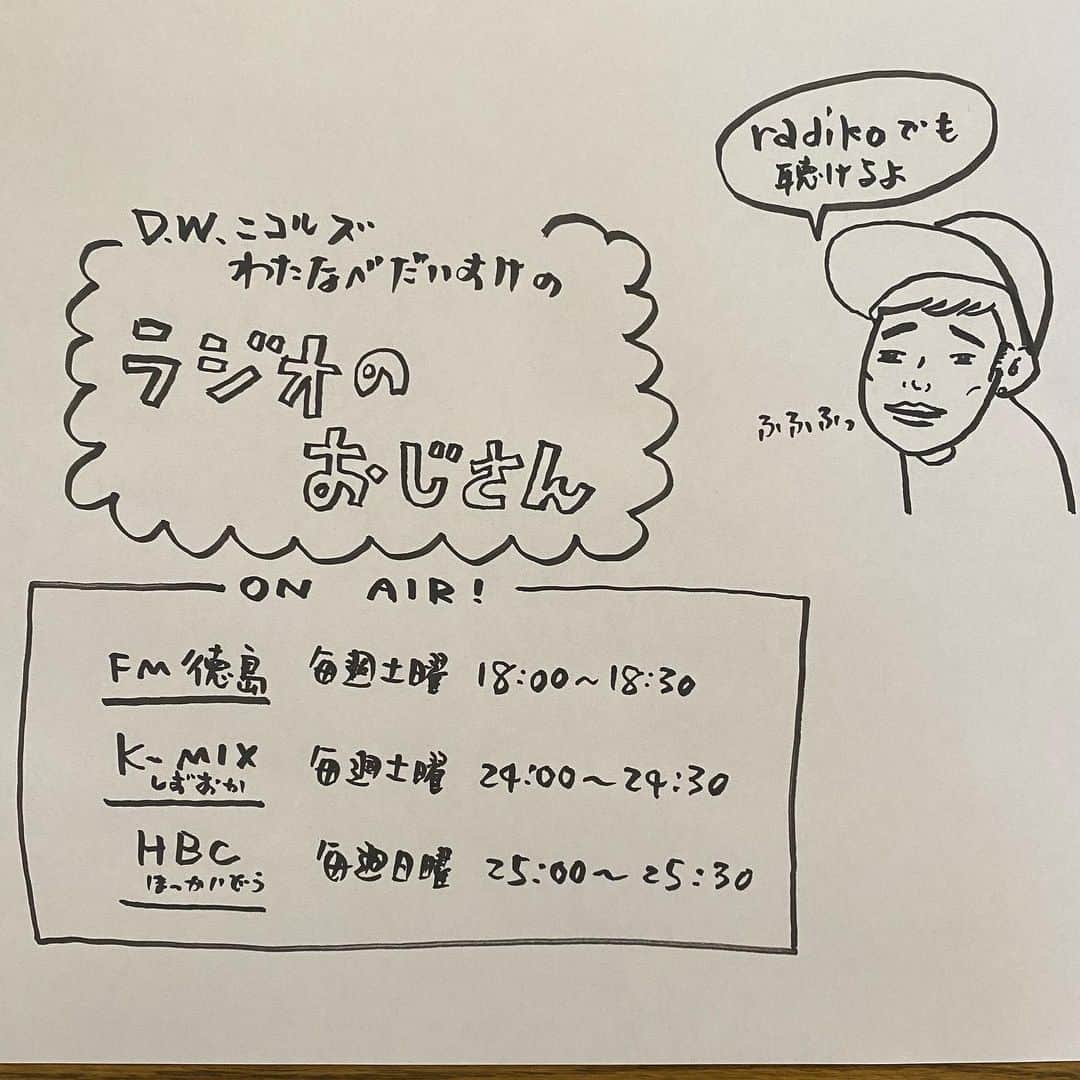 radikoでも
聴けるよ
D.W.ニコルズ
わたなべだいすけの
ラジオの
おじさん
ふふふっ
ON AIR!
FM徳島 毎週土曜 18:00〜18:30
K-MIX 毎週土曜 24:00〜24:30
しずおか
HBC 毎週日曜 25:00〜25:30
ほっかいどう